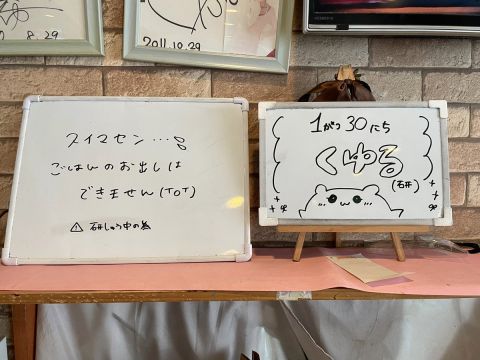 8.29
2011.10.29
スイマセン…
ごはんのお出しは
できません(TOT)
⚠ 研しゅう中の為
1がつ30にち
くゆる
(石井)